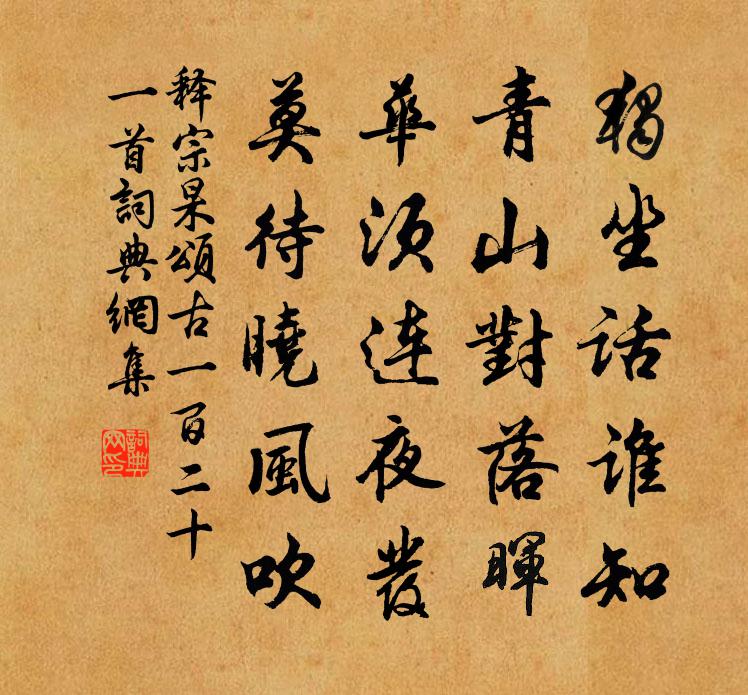 獨坐話誰知
青山對落暉
華須連夜發
莫待曉風吹
释宗杲頌古一百二十
一首詞典網集
詞典網印